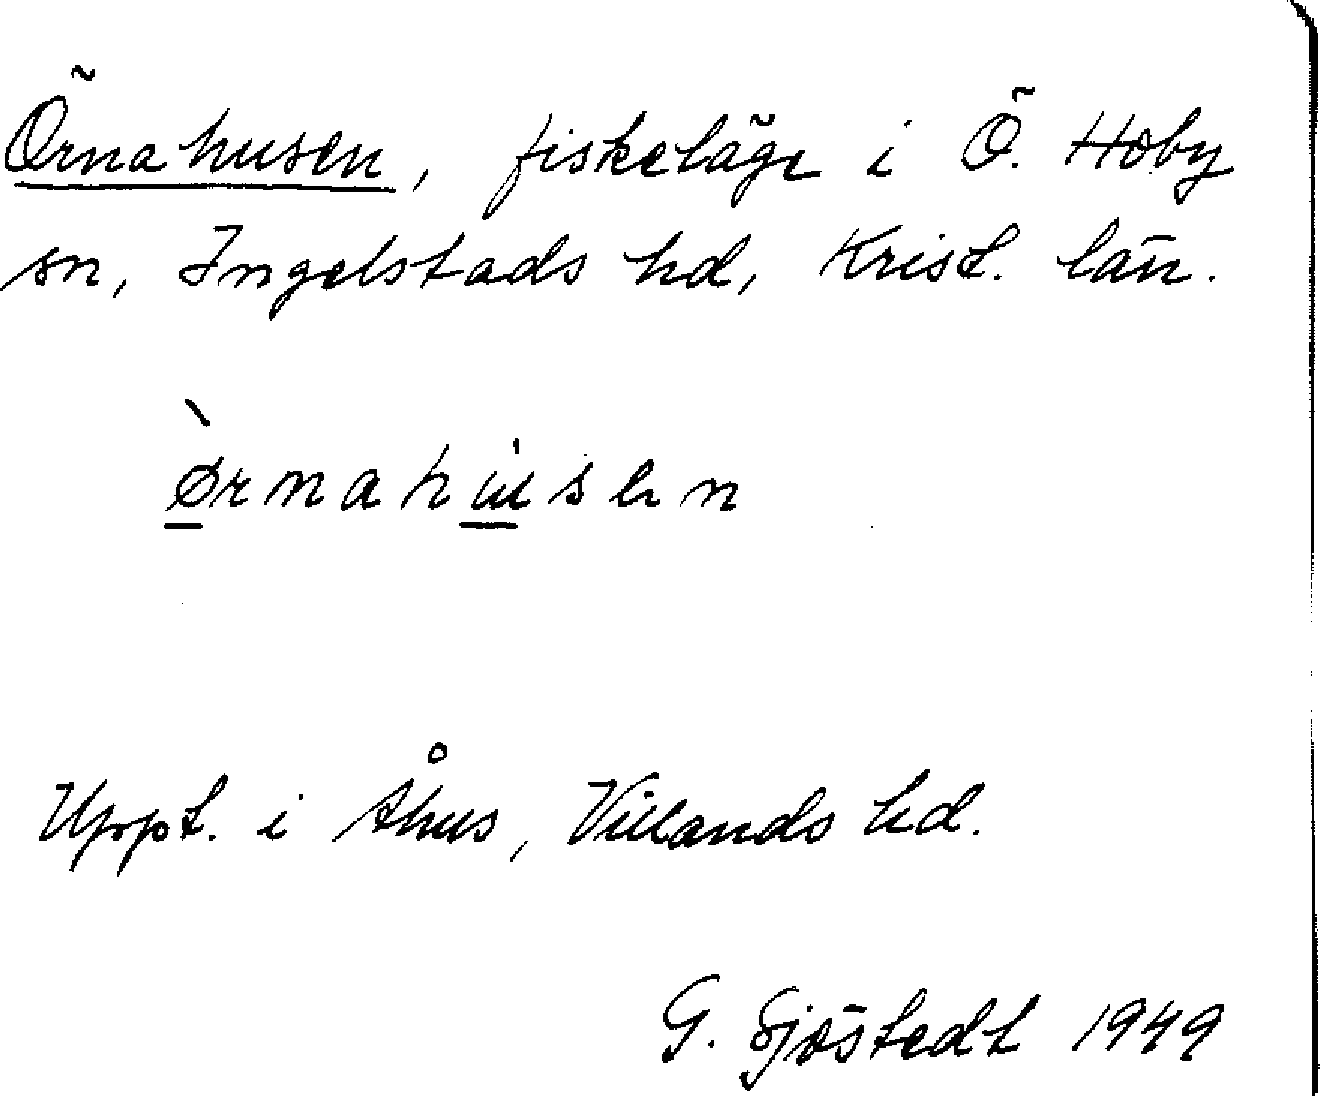 Örnahusen, fiskeläge i Ö. Hoby
sn, Ingelstads hd, Krist. län.
ø̀rnahúsen
Uppt. i Åhus, Villands hd.
G. Sjöstedt 1949